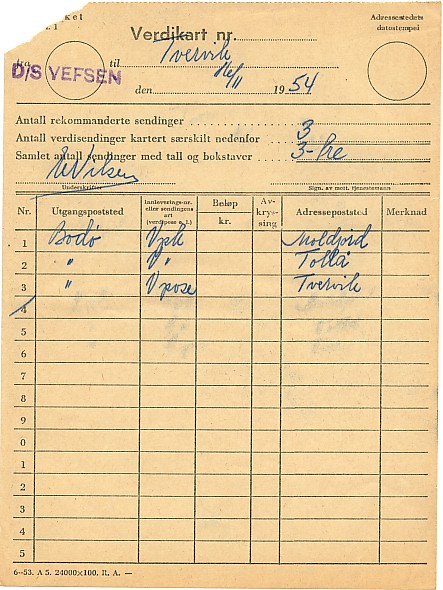 ket
Adressestedets
1
Verdikart nr.
datostempel
fra
til Tvervik
D/S VEFSEN
den 16/11 1954
Antall rekommanderte sendinger
Antall verdisendinger kartert særskilt nedenfor 3
Samlet antall sendinger med tall og bokstaver 3-tre
Underskrift
Sign. av mott. tjenestemann
Nr. Utgangspoststed Innleverings-nr. eller sendingens art (verdipose o. l.) Beløp kr. Av-kryssing Adressepoststed Merknad
1 Bodø Vpk Moldjord
2 " V " Tollå
3 " Vpose Tvervik
4
5
6
7
8
9
0
1
2
3
4
5
6–53. A 5. 24000×100. R. A. —